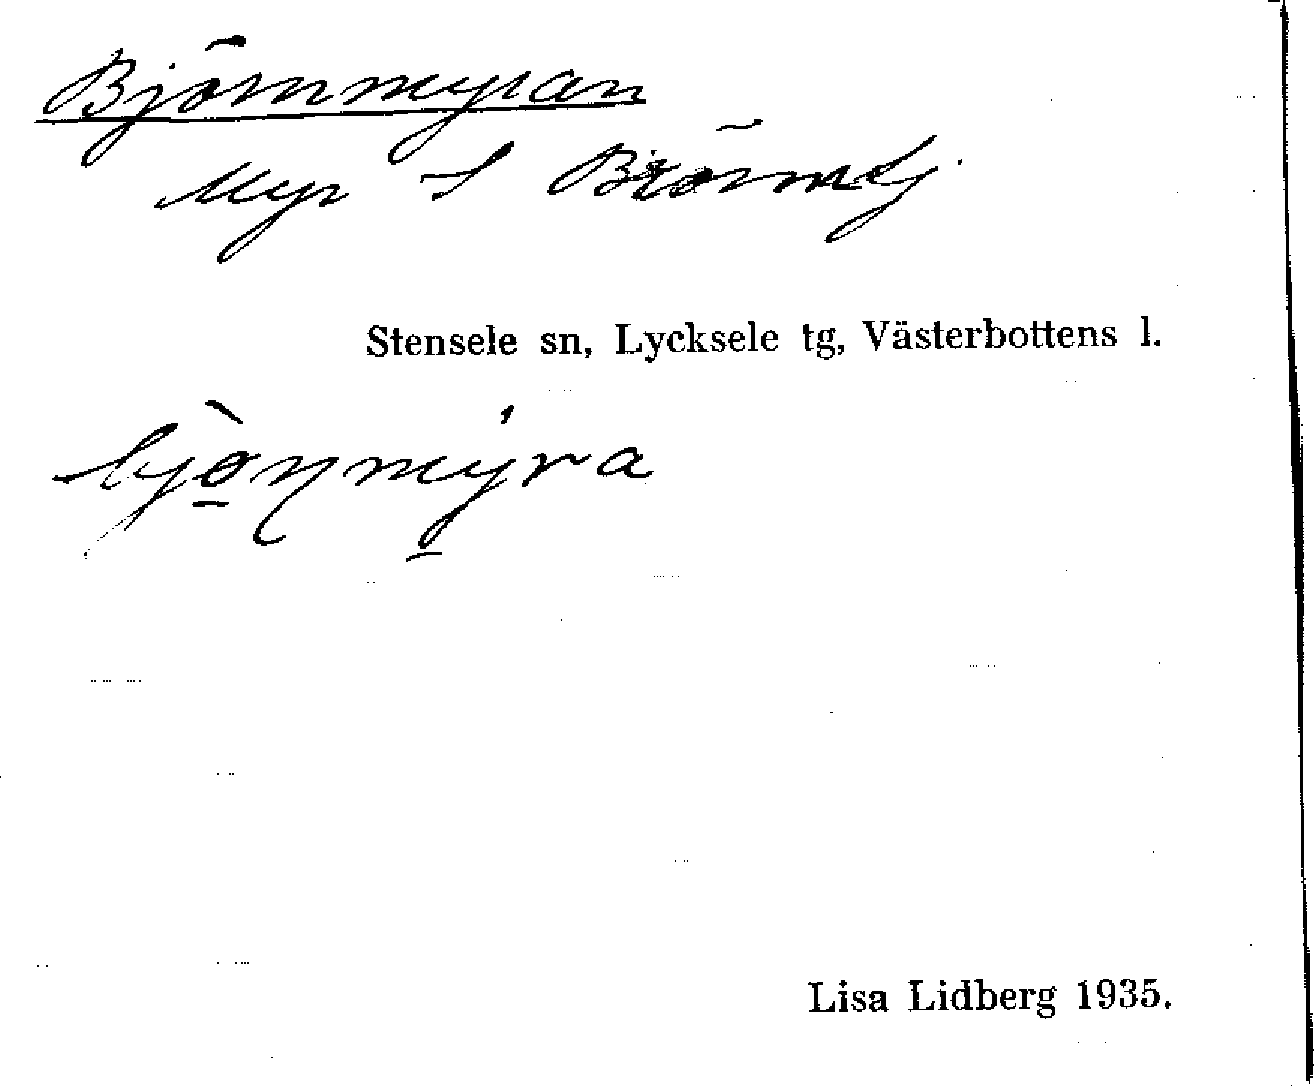 Björnmyran
Myr S
Stensele sn, Lycksele tg, Västerbottens l.
Lisa Lidberg 1935.